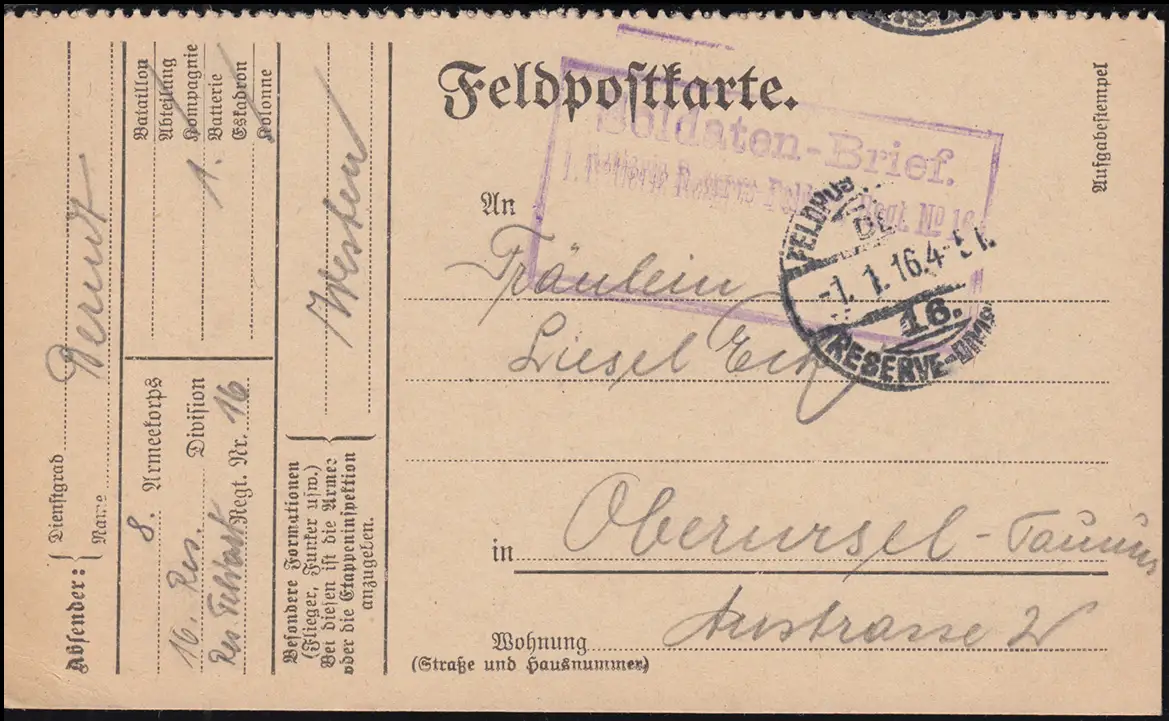 Feldpostkarte.
Soldaten-Brief.
1. Batterie Reserve Regt. No 16
Aufgabestempel
An
Fräulein
Liesel
FELDPOS
-1. 1. 16. 4-5
16.
RESERVE-DIVIS
in Oberursel-Taunus
Wohnung
(Straße und Hausnummer)
Absender:
Dienstgrad
Name
8. Armeekorps
16. Res. Division
Res Feldart Regt. Nr. 16
Bataillon
Abteilung
Kompagnie
Batterie 1.
Eskadron
Kolonne
Besondere Formationen
(Flieger, Funker usw.)
Bei diesen ist die Armee
oder die Etappeninspektion
anzugeben.
Westen